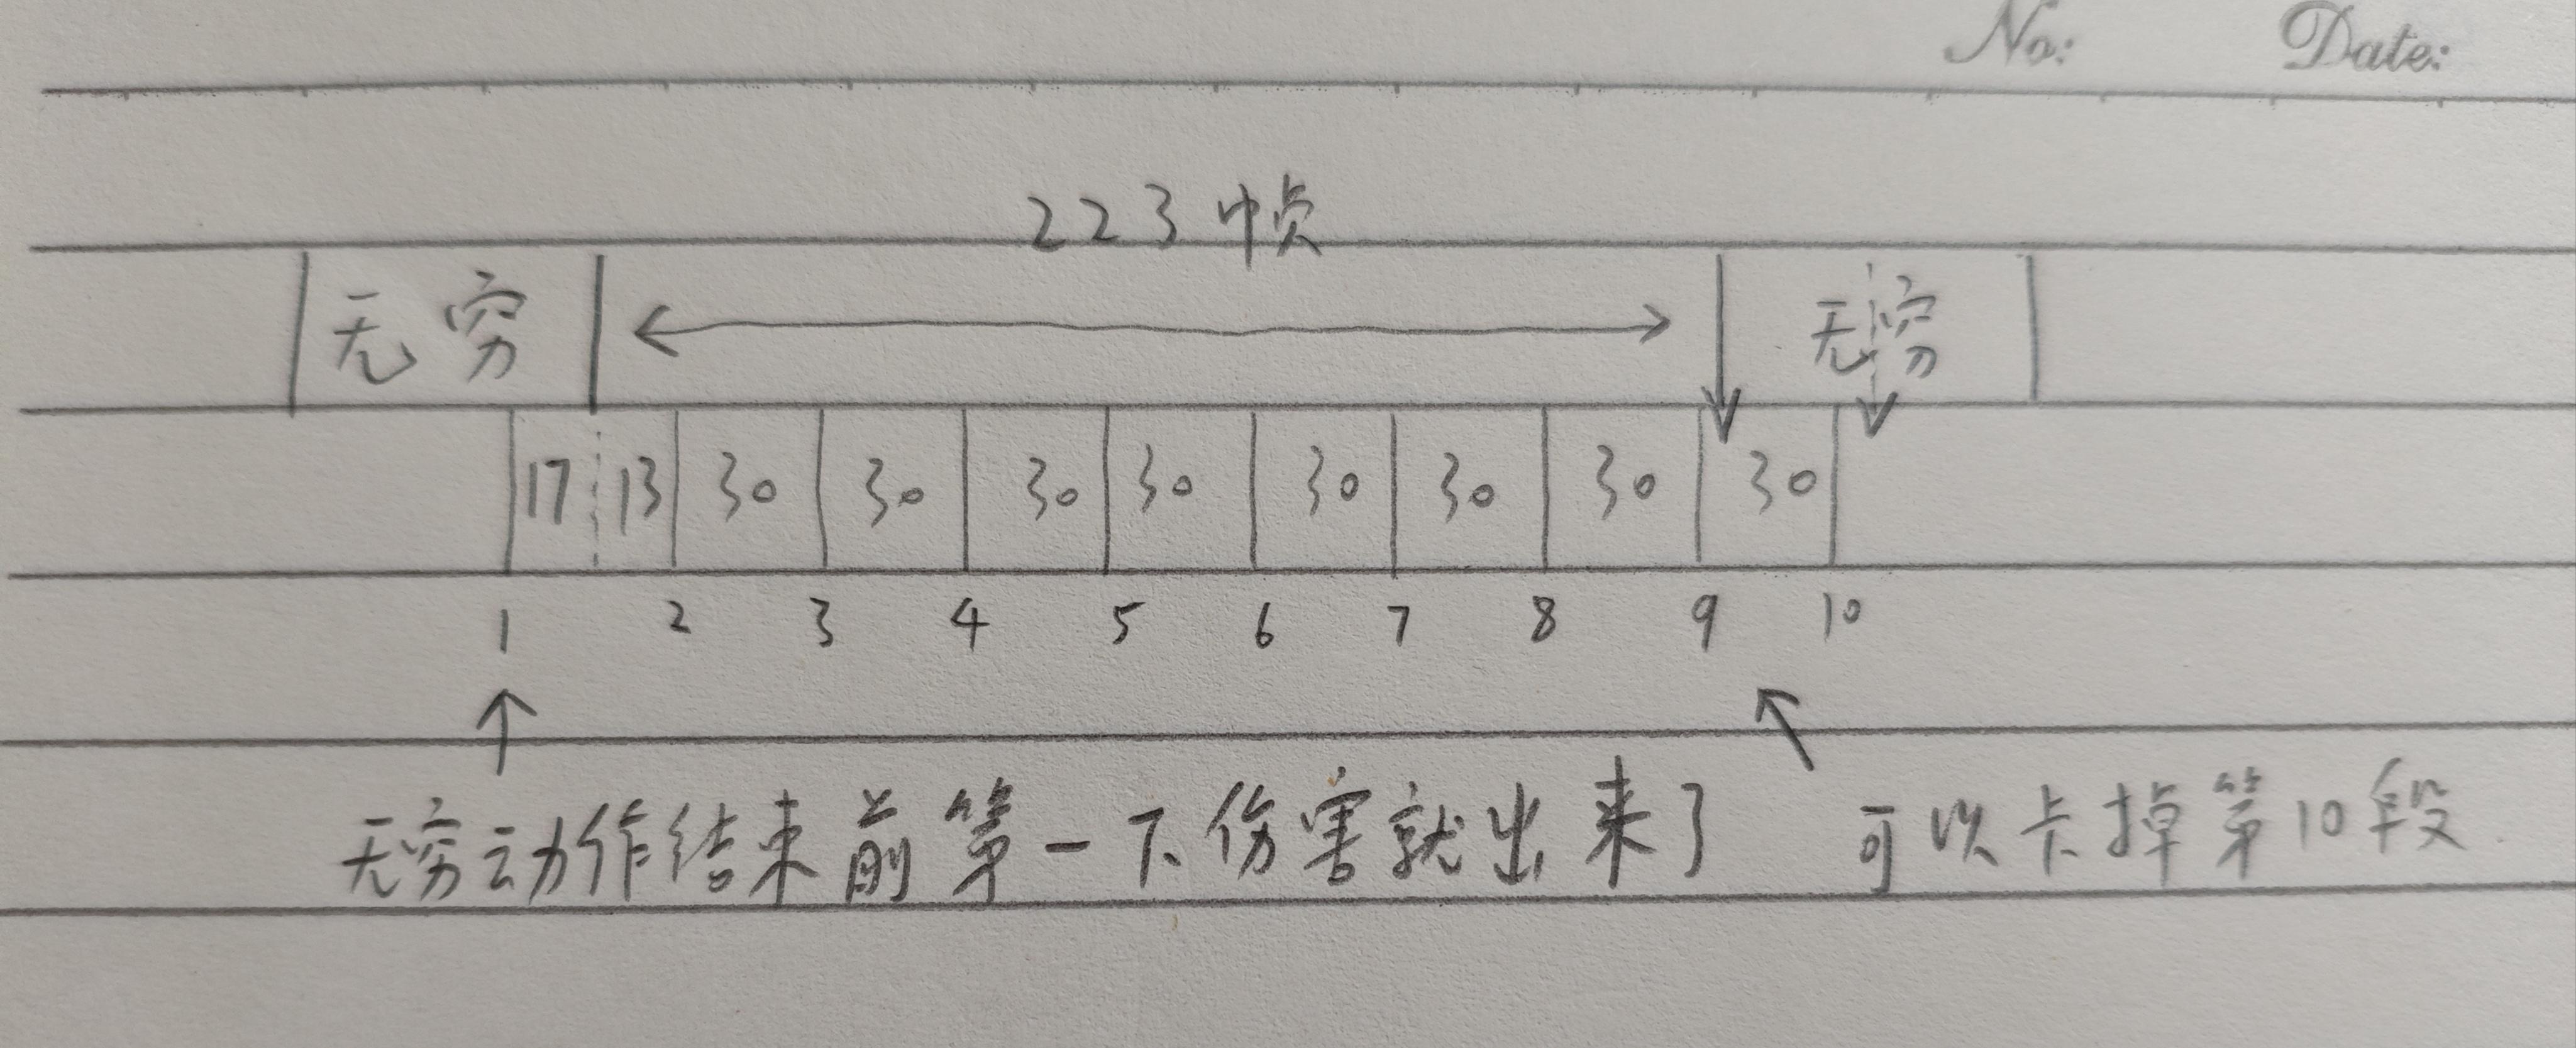 No: Date:
223帧
无穷 无穷
17 13 30 30 30 30 30 30 30 30
1 2 3 4 5 6 7 8 9 10
无穷动作结束前第一下伤害就出来了 可以卡掉第10段